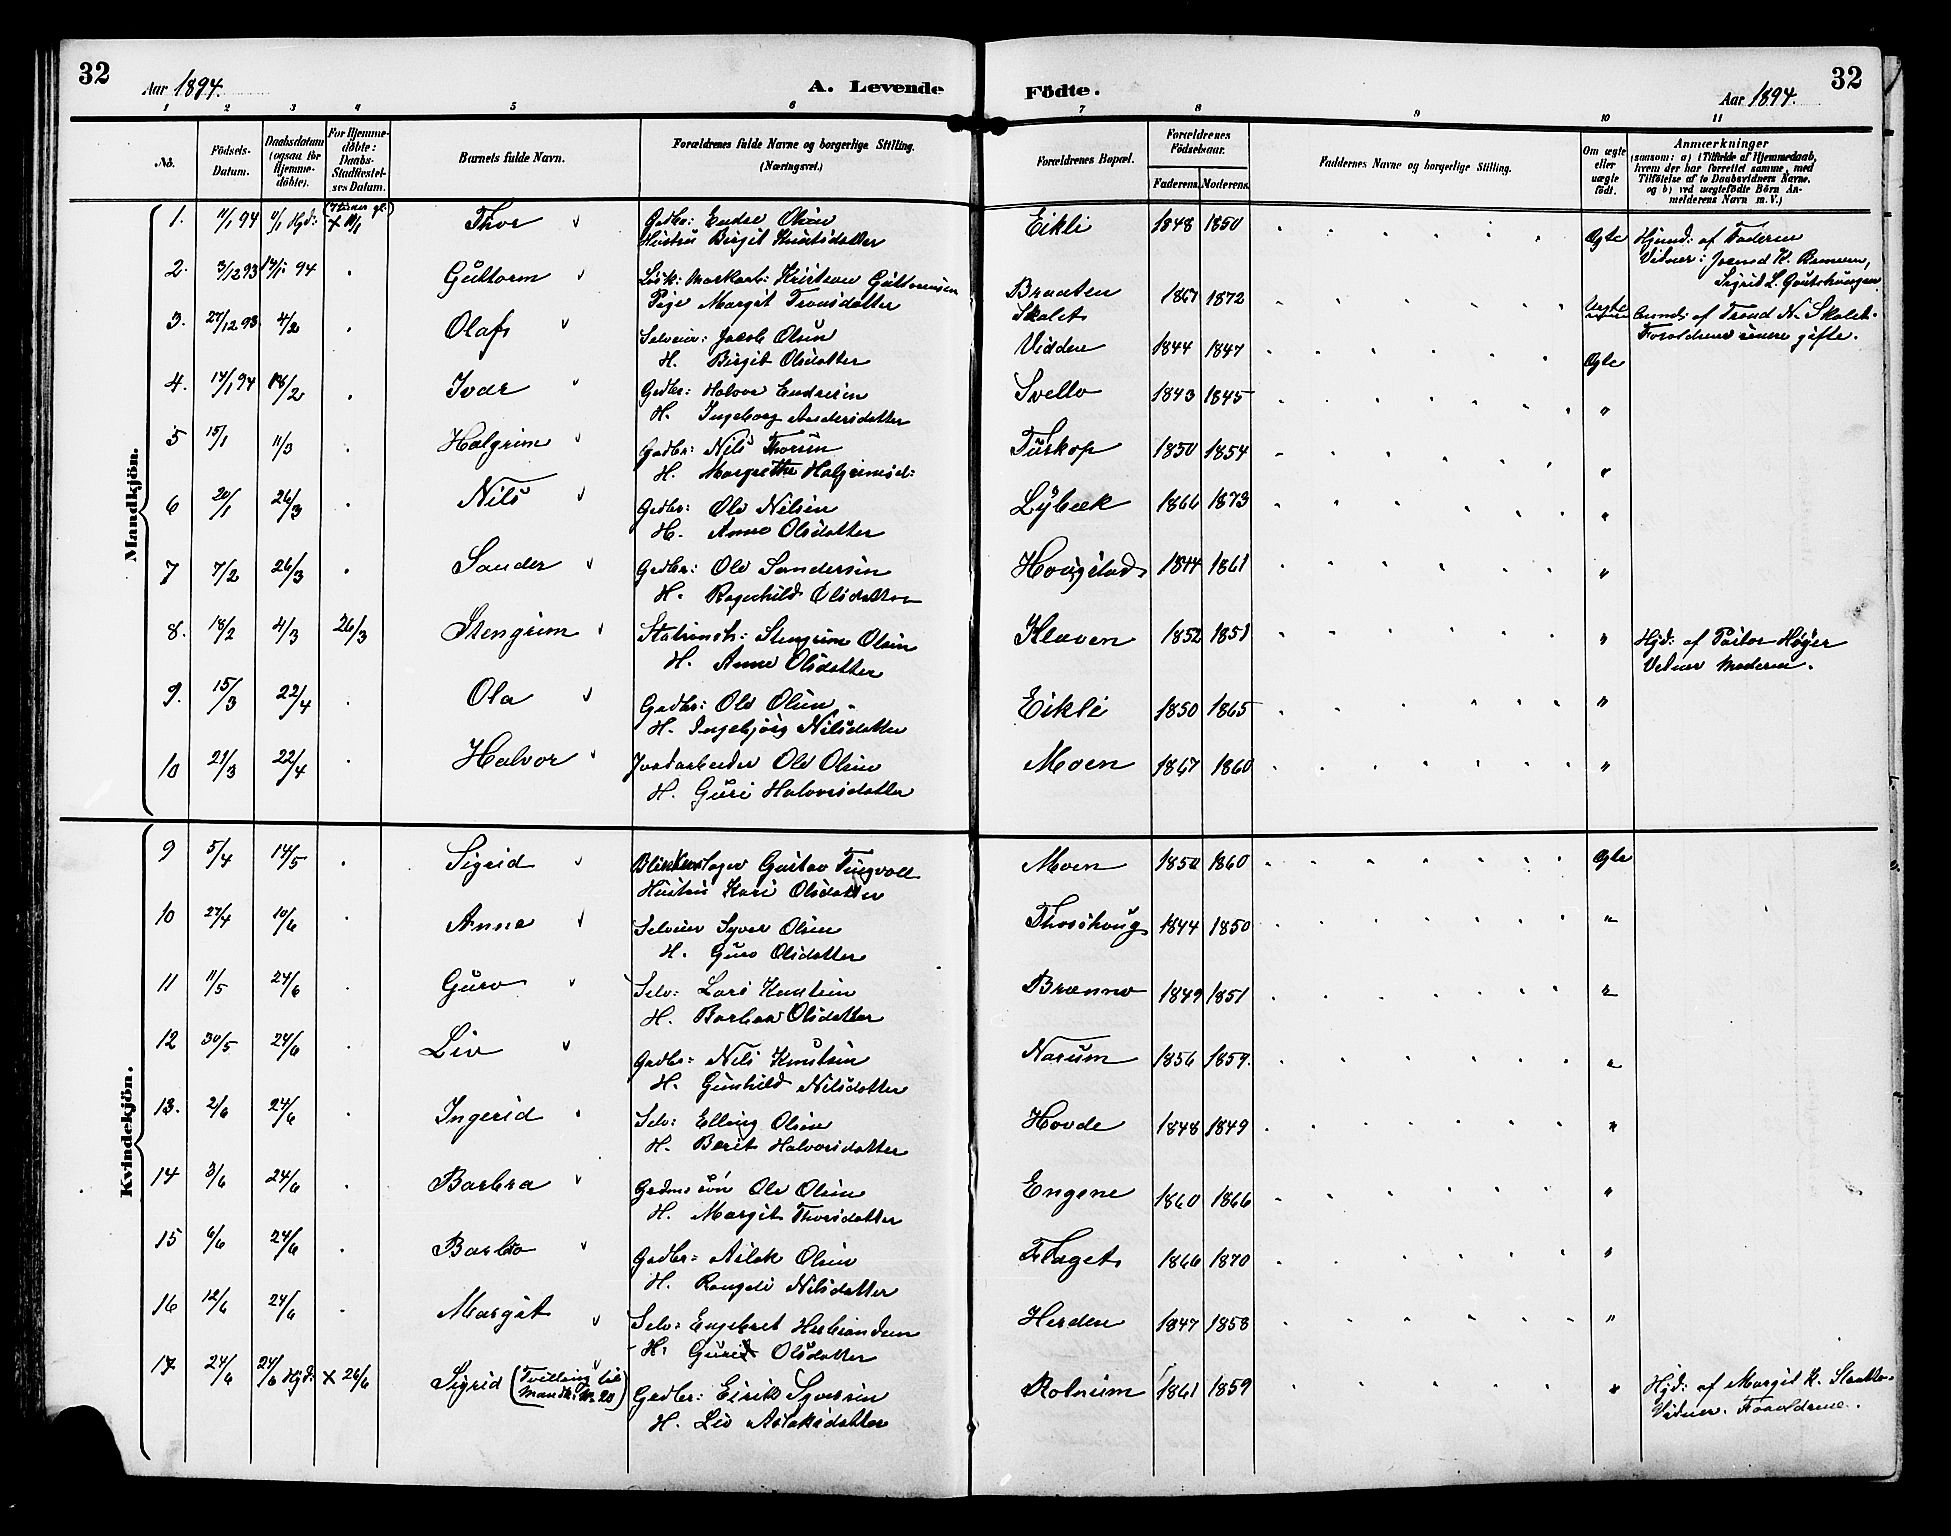 32
Aar 1894.
A. Levende
Födte.
Aar 1894.
32
1 2 3 4 5 6 7 8 9 10 11
No.
Födsels-
Datum.
Daabsdatum
(ogsaa for
Hjemme-
döbte).
For Hjemme-
döbte:
Daabs-
Stadfæstel-
ses Datum.
Barnets fulde Navn.
Forældrenes fulde Navne og borgerlige Stilling.
(Næringsvei.)
Forældrenes Bopæl.
Forældrenes
Födselsaar.
Faderens. Moderens.
Faddernes Navne og borgerlige Stilling.
Om ægte
eller
uægte
født.
Anmærkninger
(saasom: a) i Tilfælde af Hjemmedaab,
hvem der har forrettet samme, med
Tilföielse af to Daabsvidners Navne,
og b) ved uægtefödte Börn An-
melderens Navn m. V.)
Mandkjön.
1. 11/1 94 11/1 Hjd: x 11/1 Thor Gedbr: Endre Olsen Eikli 1848 1850 Ægte Hjmd: af Faderen
Hustru Birgit Knutsdatter Vidner:
2. 3/12 93 14/1 94 Guttorm Kristian Guttormsen Braaten 1867 1872 Uægte Anmd: af Trond N. Skalet.
Pige Margit Tronsdatter Skalet Forældrene senere gifte.
3. 27/12 93 4/2 Olaf Selveier: Jacob Olsen Vidden 1844 1847 Ægte
H. Birgit Olsdatter
4. 14/1 94 18/2 Ivar Gedbr: Halvor Endresen Svello 1843 1845 "
H. Ingeborg Andersdatter
5 15/1 11/3 Halgrim Gedbr: Nils Thorsen Tuskop 1850 1854 "
H. Margrethe Halgrimsd:
6 20/1 26/3 Nils Gedbr: Ole Nilsen Lybæk 1866 1873 "
H. Anne Olsdatter
7 7/2 26/3 Sander Gedbr: Ole Sandersen Hougstad 1844 1861 "
H. Ragnhild Olsdatter
8. 18/2 4/3 26/3 Stengrim Stengrim Olsen Kleven 1852 1851 " Hjd: af Pastor Høyer
H. Anne Olsdatter Vidner Moderen.
9. 15/3 22/4 Ola Gedbr: Ole Olsen Eikli 1850 1865 "
H. Ingebjörg Nilsdatter
10 21/3 22/4 Halvor Jordarbeider Ole Olsen Moen 1867 1860 "
H. Guri Halvorsdatter
Kvindekjön.
9 5/4 14/5 Sigrid Blikkenslager Gustav Tingvoll Moen 1850 1860 Ægte
Hustru Kari Olsdatter
10 27/4 10/6 Anne Selveier Syver Olsen Thoishoug 1844 1850 "
H. Guro Olsdatter
11 11/5 24/6 Guro Selv: Lars Knutsen Brænno 1849 1851 "
H. Barbra Olsdatter
12 30/5 24/6 Liv Gedbr: Nils Knutsen Narum 1856 1859. "
H. Gunhild Nilsdatter
13. 2/6 24/6 Ingerid Selv: Elling Olsen Hovde 1848 1849 "
H. Berit Halvorsdatter
14 3/6 24/6 Barbra Ole Olsen Engene 1860 1866 "
H. Margit Thorsdatter
15 6/6 24/6 Barbro Gedbr: Aslak Olsen Flaget 1866 1870 "
H. Rangdi Nilsdatter
16 12/6 24/6 Margit Selv: Engebret Herbrandsen Herden 1847 1858 "
H. Guri Olsdatter
17 24/6 24/6 Hjd: x 26/6 Sigrid (Tvilling til Mandk: No 20) Gedbr: Eirik Syversen Rolvium 1861 1859 " Hjd: af Margit K.
H. Liv Aslaksdatter Vidner. Forældrene.